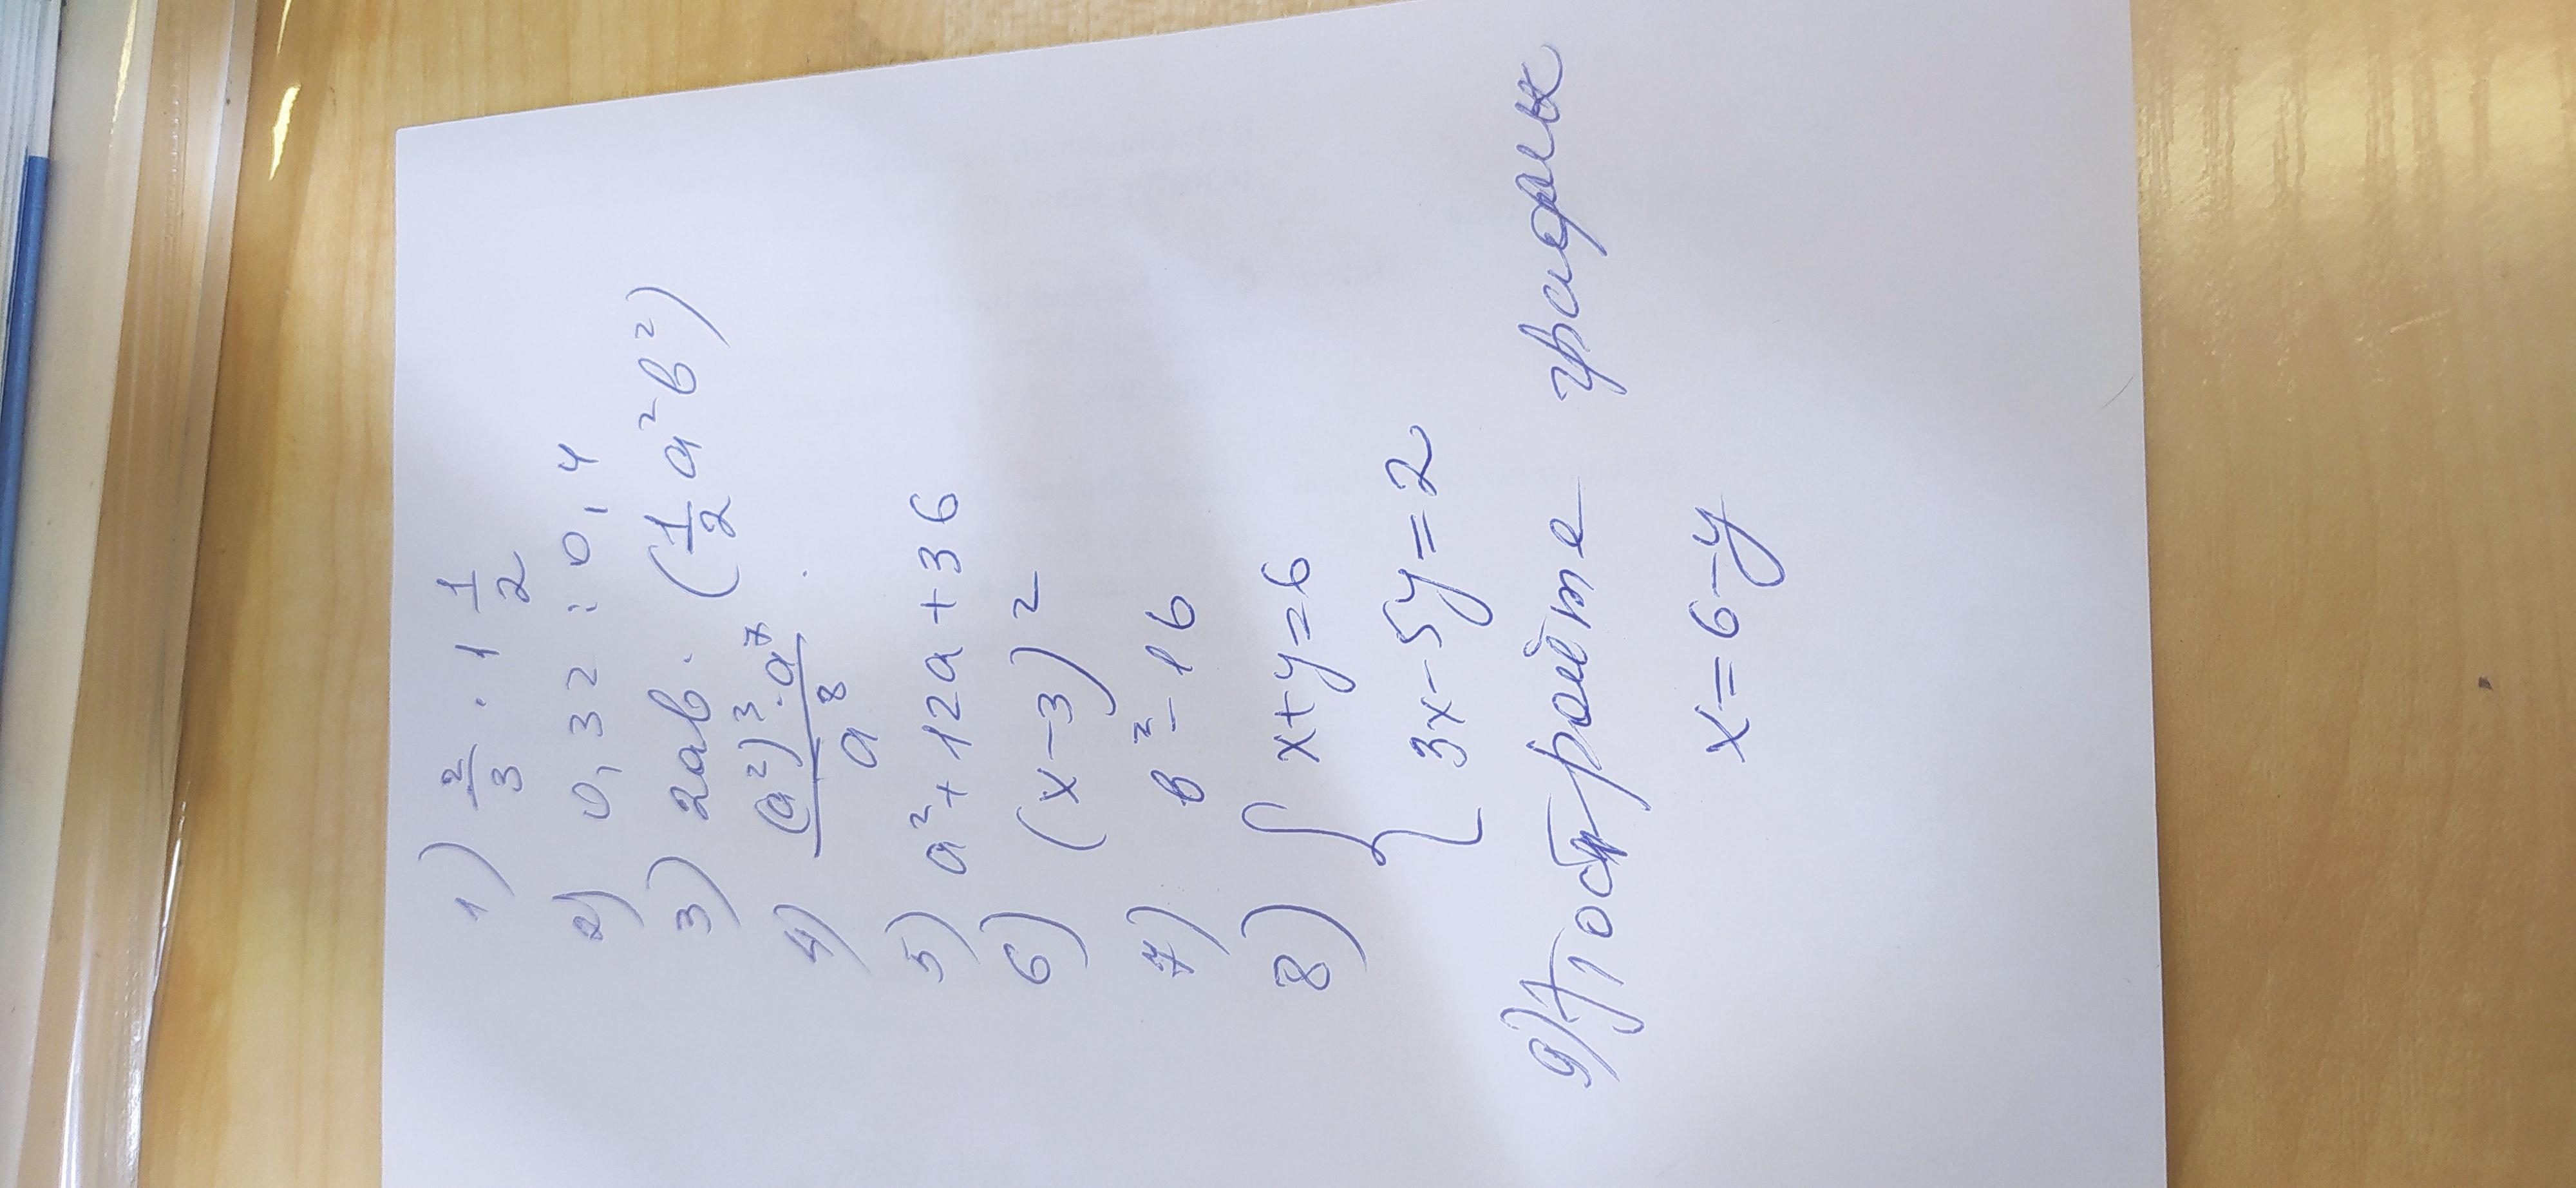 1) 2/3 · 1 1/2
2) 0,32 : 0,4
3) 2ab · (1/2 a²b²)
4) (a²)³ · a⁷ / a⁸
5) a² + 12a + 36
6) (x−3)²
7) b² − 16
8) { x+y=6
3x−5y=2
9) Постройте график
x=6−y